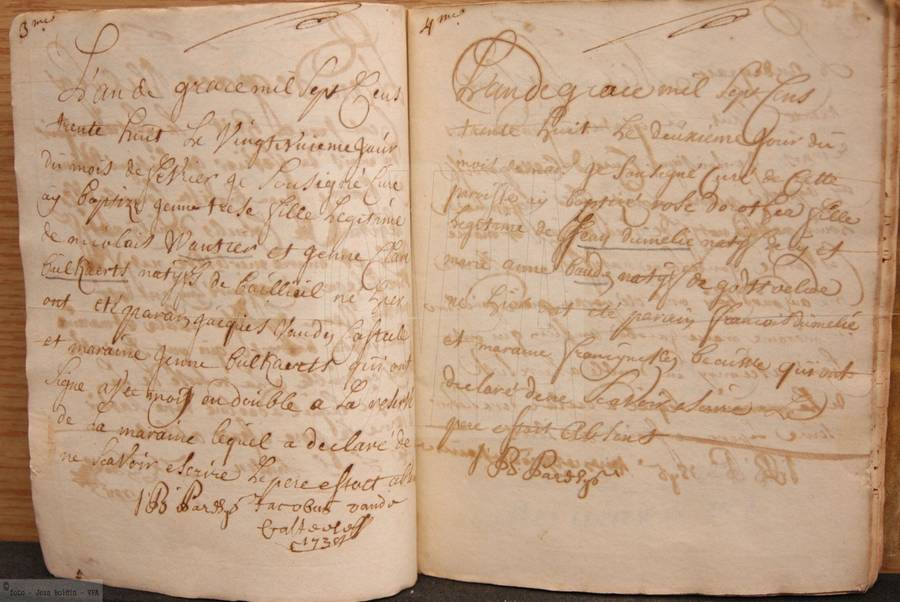 3me
L'an de grace mil Sept Cens
trente huit Le Vingtiuieme Jour
du mois de fevrier je Sousigné Curé
ay Baptize jenne trese fille Legitime
de nicolais Wautier et jenne Clare
bulkaerts natifs de bailleil né hier
ont eté parain jacques Vande Casteele
et maraine jenne bulkaerts qui ont
signe avec moy ou double a La reserve
de La maraine lequel a declaré de
ne scavoir escrire Le pere estoit
JBB Pardys Jacobus vande
Casteele
1738
4me
L'an de grace mil Sept Cens
trente huit Le deuxieme Jour du
mois de mars je Sousigné Curé de Cette
paroisse ay baptise rose dorothea fille
Legitime de jean dumelie natif de et
marie anne baude natifs de godsvelde
né hier ont eté parain francois dumelié
et maraine qui ont
declaré de ne Scavoir escrire Le
pere estoit absent
JBB Pardys
© foto - Jean Boidin - VVA